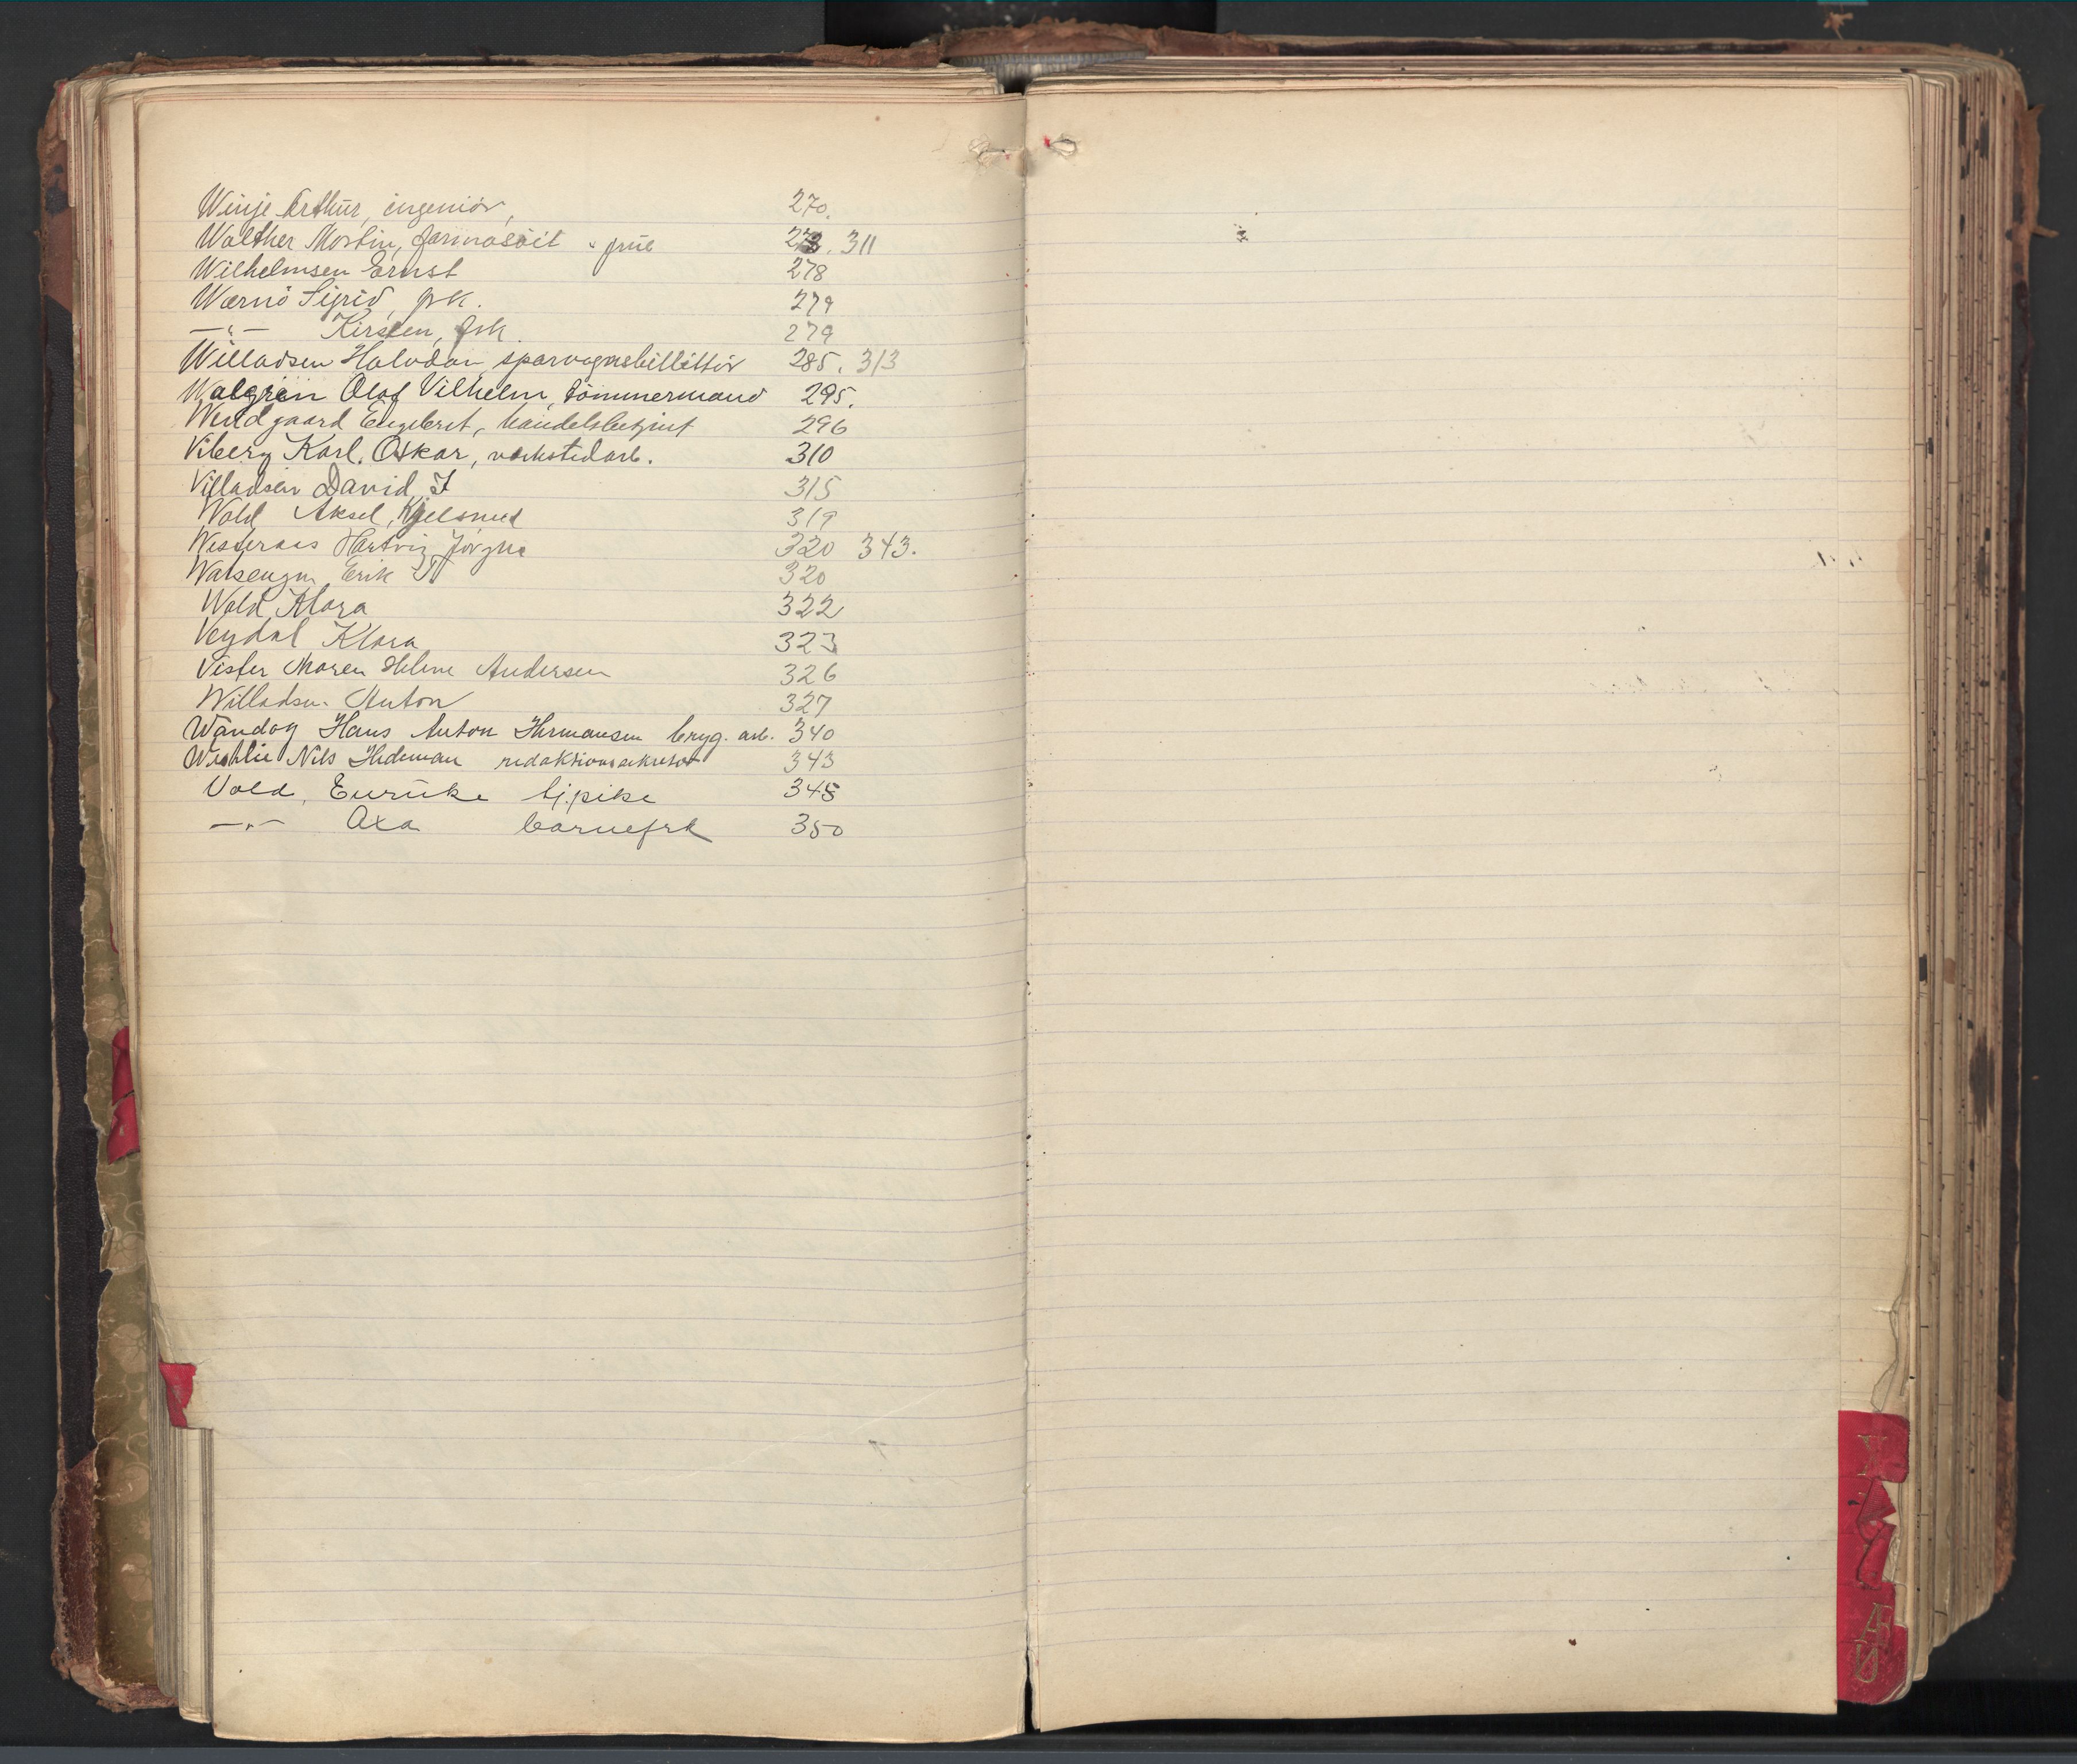 Winje Arthur, ingeniør, 270.
Walther Morten, farmasöit & frue 273. 311
Wilhelmsen Ernst 278
Wærnö Sigrid, frk. 279
—"— Kirsten, frk. 279
Willadsen Halvdan, sporvognsbilletör 285. 313
Walgren Olof Vilhelm, tömmermand 295.
Wendgaard Engebret, handelsbetjent 296
Viberg Karl. Oskar, verkstedarb. 310
Villadsen David I 315
Wold Aksel, Kjelsrud 319
Westeraas Hartvig 320 343.
Erik 320
Wold Klara 322
Veydal Klara 323
Vister Maren Helene Andersen 326
Willadsen Anton 327
Wandog Hans Anton Hermansen bryg. arb. 340
Nils Hedeman redaktionssekretær 343
Vold, tj.pike 345
—"— Axa barnefrk 350
Æ
Ø